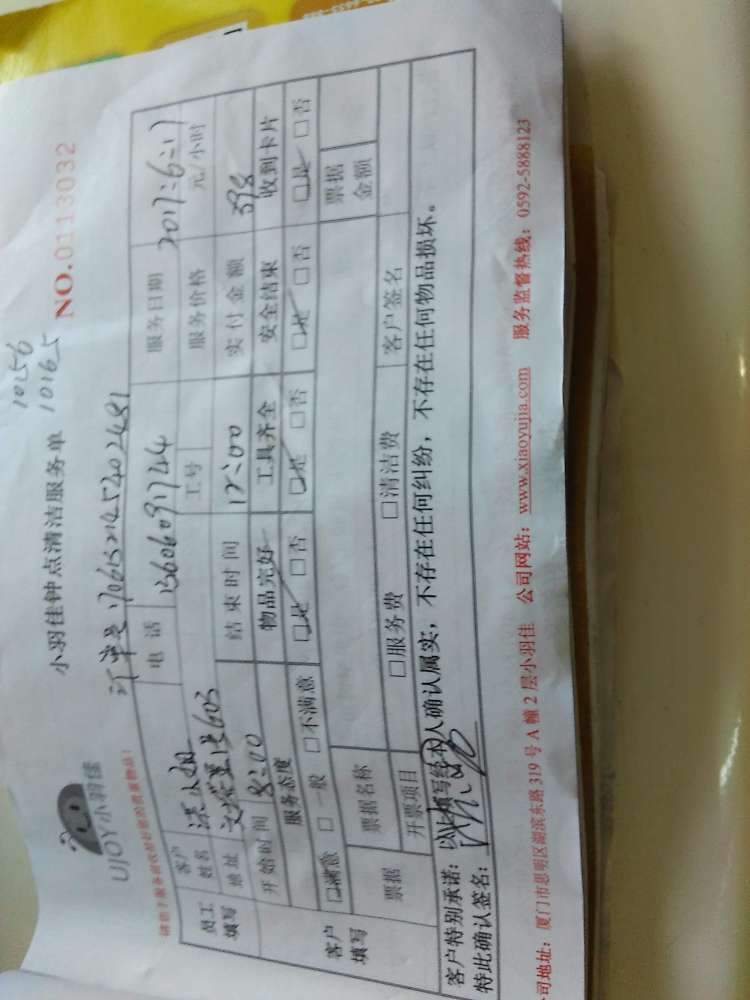 10256
10165
UJOY小羽佳
小羽佳钟点清洁服务单
NO.0113032
订单号:
员工填写
客户姓名
电话
服务日期 2017:6:17
地址
工号
服务价格 元/小时
开始时间 8:00
结束时间 12:00
实付金额 398
客户填写
服务态度
物品完好
工具齐全
安全结束
收到卡片
□满意 □一般 □不满意
□是 □否
□是 □否
□是 □否
□是 □否
票据
票据名称
票据金额
开票项目
□服务费 □清洁费
客户签名
客户特别承诺: 以上填写经本人确认属实,不存在任何纠纷,不存在任何物品损坏。
特此确认签名:
司地址: 厦门市思明区湖滨东路 319 号 A 幢 2 层小羽佳 公司网站: www.xiaoyujia.com 服务监督热线: 0592-5888123